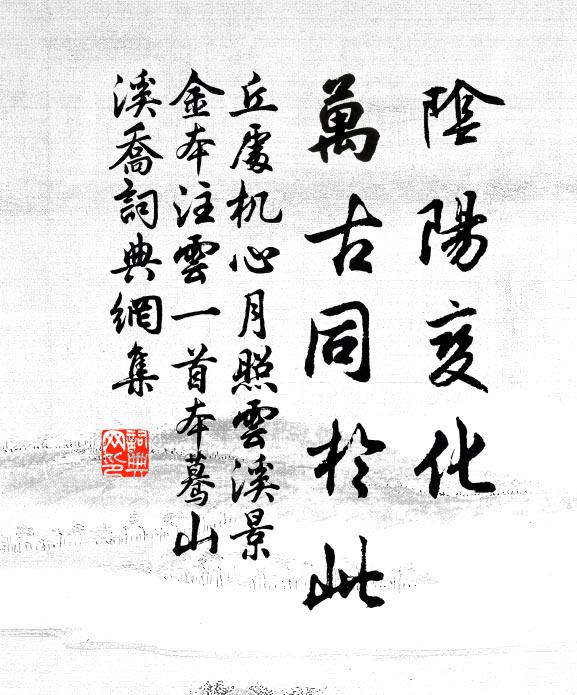 陰陽变化
萬古同於此
丘處机心月照雲溪景
金本注雲一首本驀山
溪喬詞典網集
詞典网印